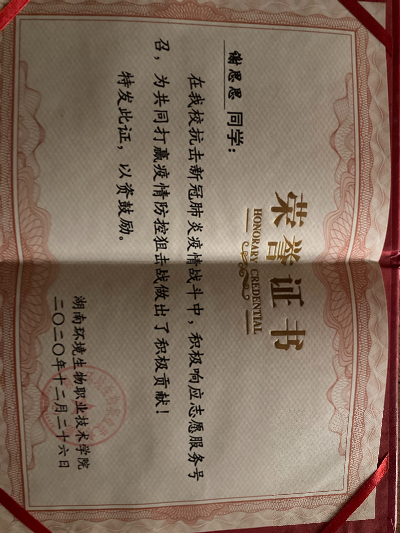 荣誉证书
HONORARY CREDENTIAL
谢思思 同学：
在我校抗击新冠肺炎疫情战斗中，积极响应志愿服务号
召，为共同打赢疫情防控狙击战做出了积极贡献！
特发此证，以资鼓励。
湖南环境生物职业技术学院
二〇二〇年十二月二十六日